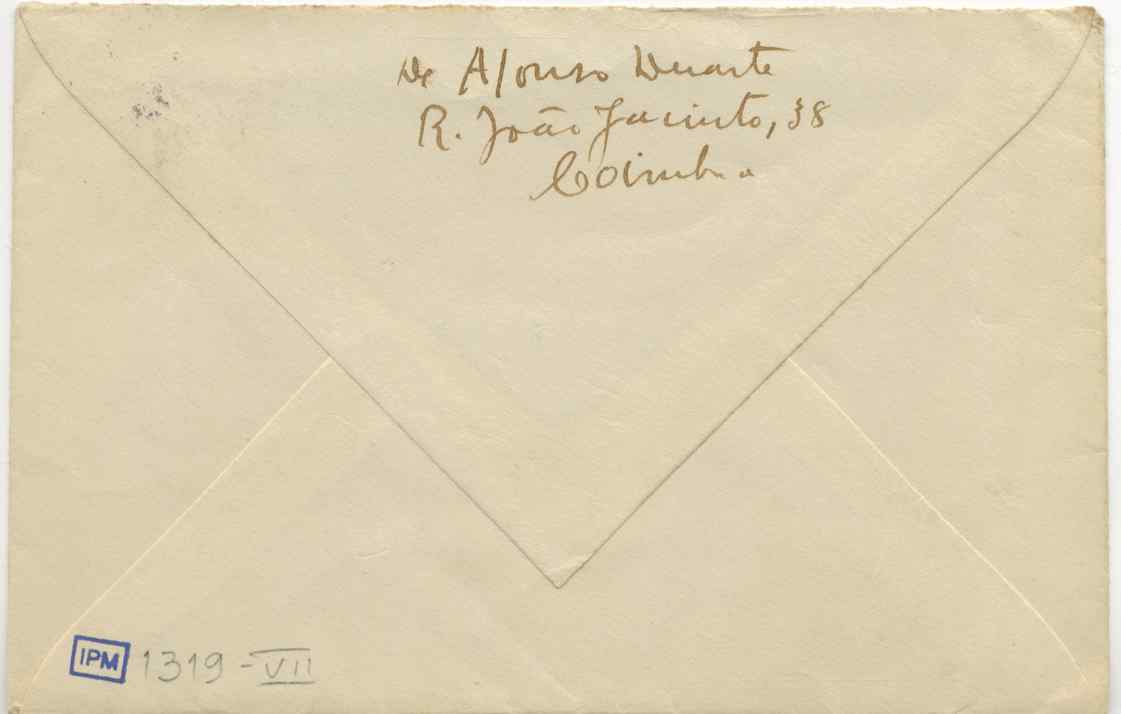 De Afonso Duarte
R. João Jacinto, 38
Coimbra
IPM 1319-VII